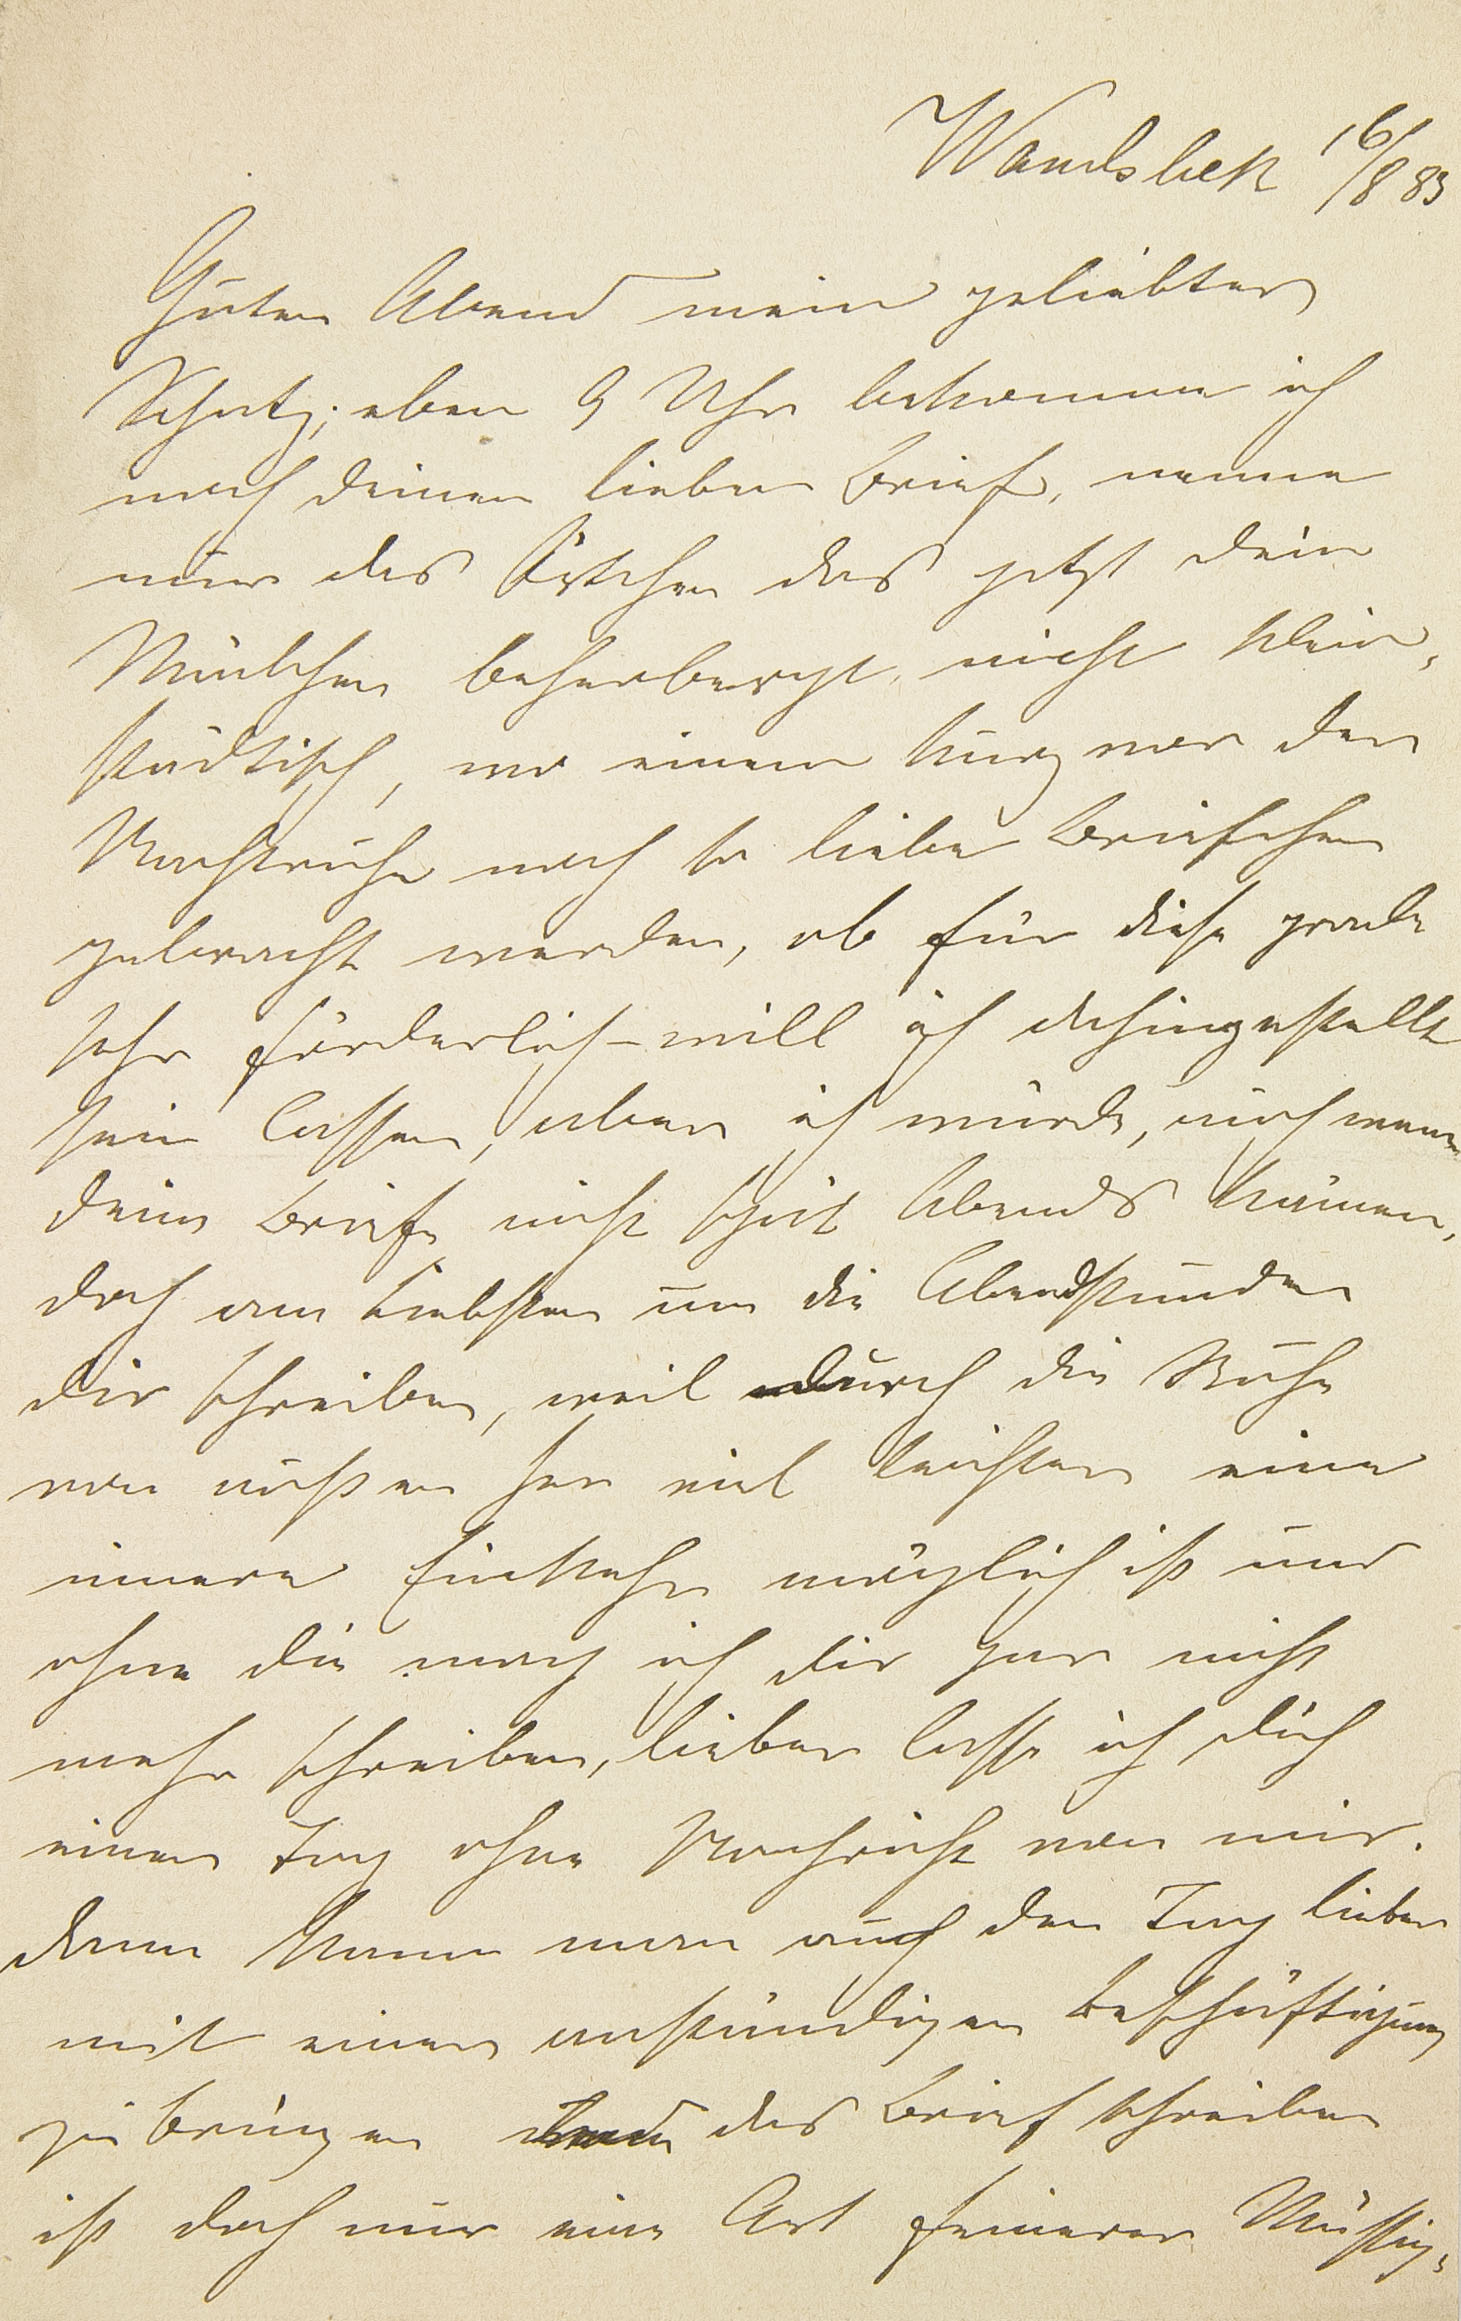 Wandsbek 16/8 83
Guten Abend mein geliebter
Schatz; eben 9 Uhr bekomme ich
noch deinen lieben Brief, nenne
mir das Örtchen das jetzt dein
Mädchen beherbergt nicht klein-
städtisch, wo einem kurz vor der
Nachtruhe noch so liebe Briefchen
gebracht werden, ob für diese grade
sehr förderlich – will ich dahingestellt
sein lassen, aber ich würde, auch wenn
deine Briefe nicht spät Abends kämen,
doch am Liebsten um die Abendstunden
dir schreiben, weil durch die Ruhe
von außen her viel leichter eine
innere Einkehr möglich ist und
ohne die mag ich dir gar nicht
mehr schreiben, lieber lasse ich dich
einen Tag ohne Nachricht von mir.
denn kann man auch den Tag lieber
mit einer anständigen Beschäftigung
zu bringen das Brief schreiben
ist doch nur eine Art feinerer Müssig-